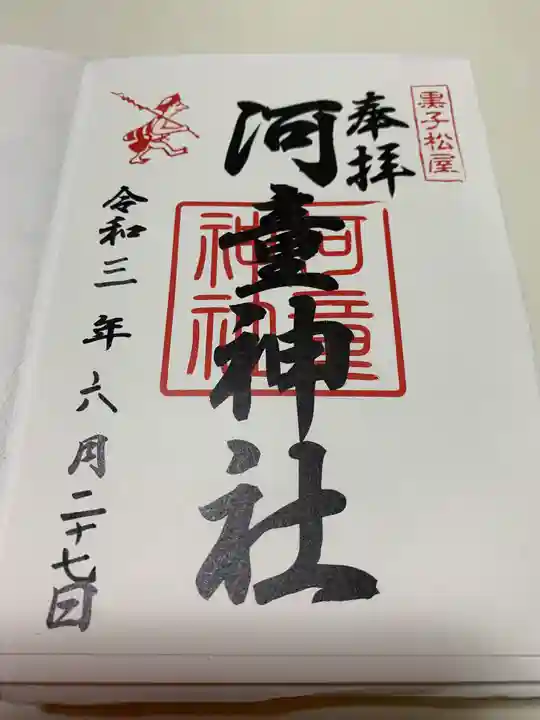 黒子松屋
奉拝
河童神社
河童
神社
令和三年六月二十七日